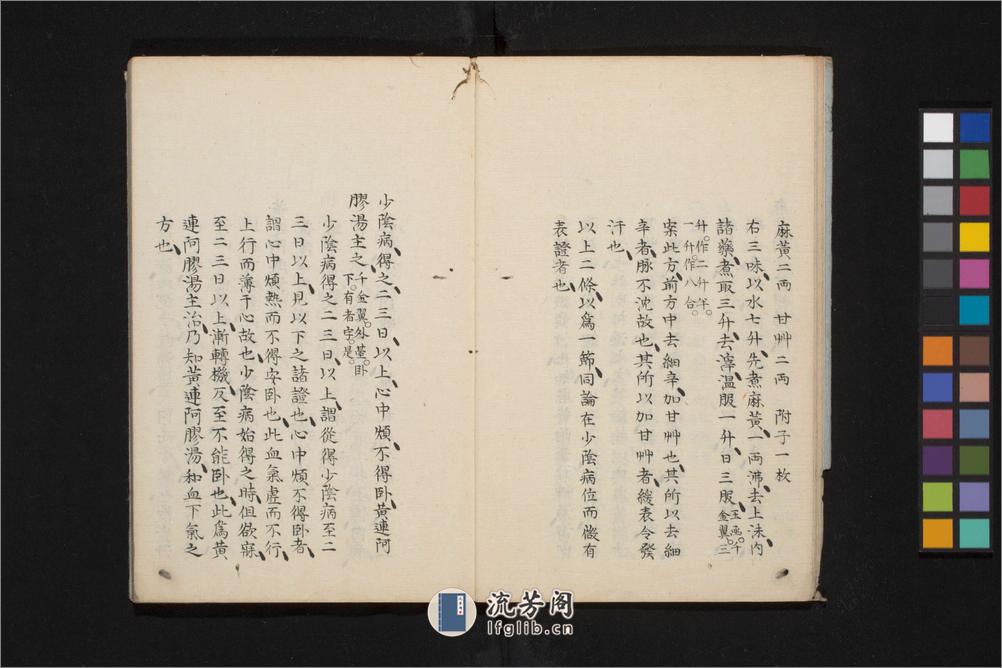 麻黃二兩 甘艸二兩 附子一枚
右三味以水七升先煮麻黃一兩沸去上沫內
諸藥煮取三升去滓溫服一升日三服玉函千金翼三
升作二升半一升作八合
案此方前方中去細辛加甘艸也其所以去細
辛者脉不沈故也其所以加甘艸者緩表令發
汗也
以上二條以爲一節同論在少陰病位而微有
表證者也
少陰病得之二三日以上心中煩不得卧黃連阿
膠湯主之千金翼外臺卧下有者字是
少陰病得之二三日以上謂從得少陰病至二
三日以上見以下之諸證也心中煩不得卧者
謂心中煩熱而不得安卧也此血氣虛而不行
上行而薄于心故也少陰病始得之時但欲寐
至二三日以上漸轉機反至不能卧也此爲黃
連阿膠湯主治乃知黃連阿膠湯和血下氣之
方也
流芳阁
lfglib.cn